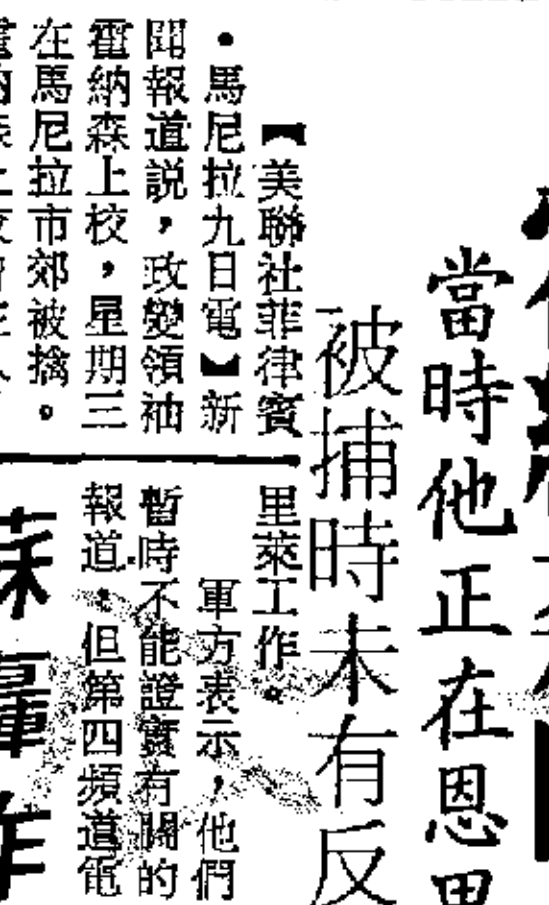 當時他正在恩
被捕時未有反
【美聯社菲律賓
・馬尼拉九日電】新
聞報道説，政變領袖
霍納森上校，星期三
在馬尼拉市郊被擒。
里萊工作。
軍方表示，他們
暫時不能證實有關的
報道。但第四頻道電
蘇